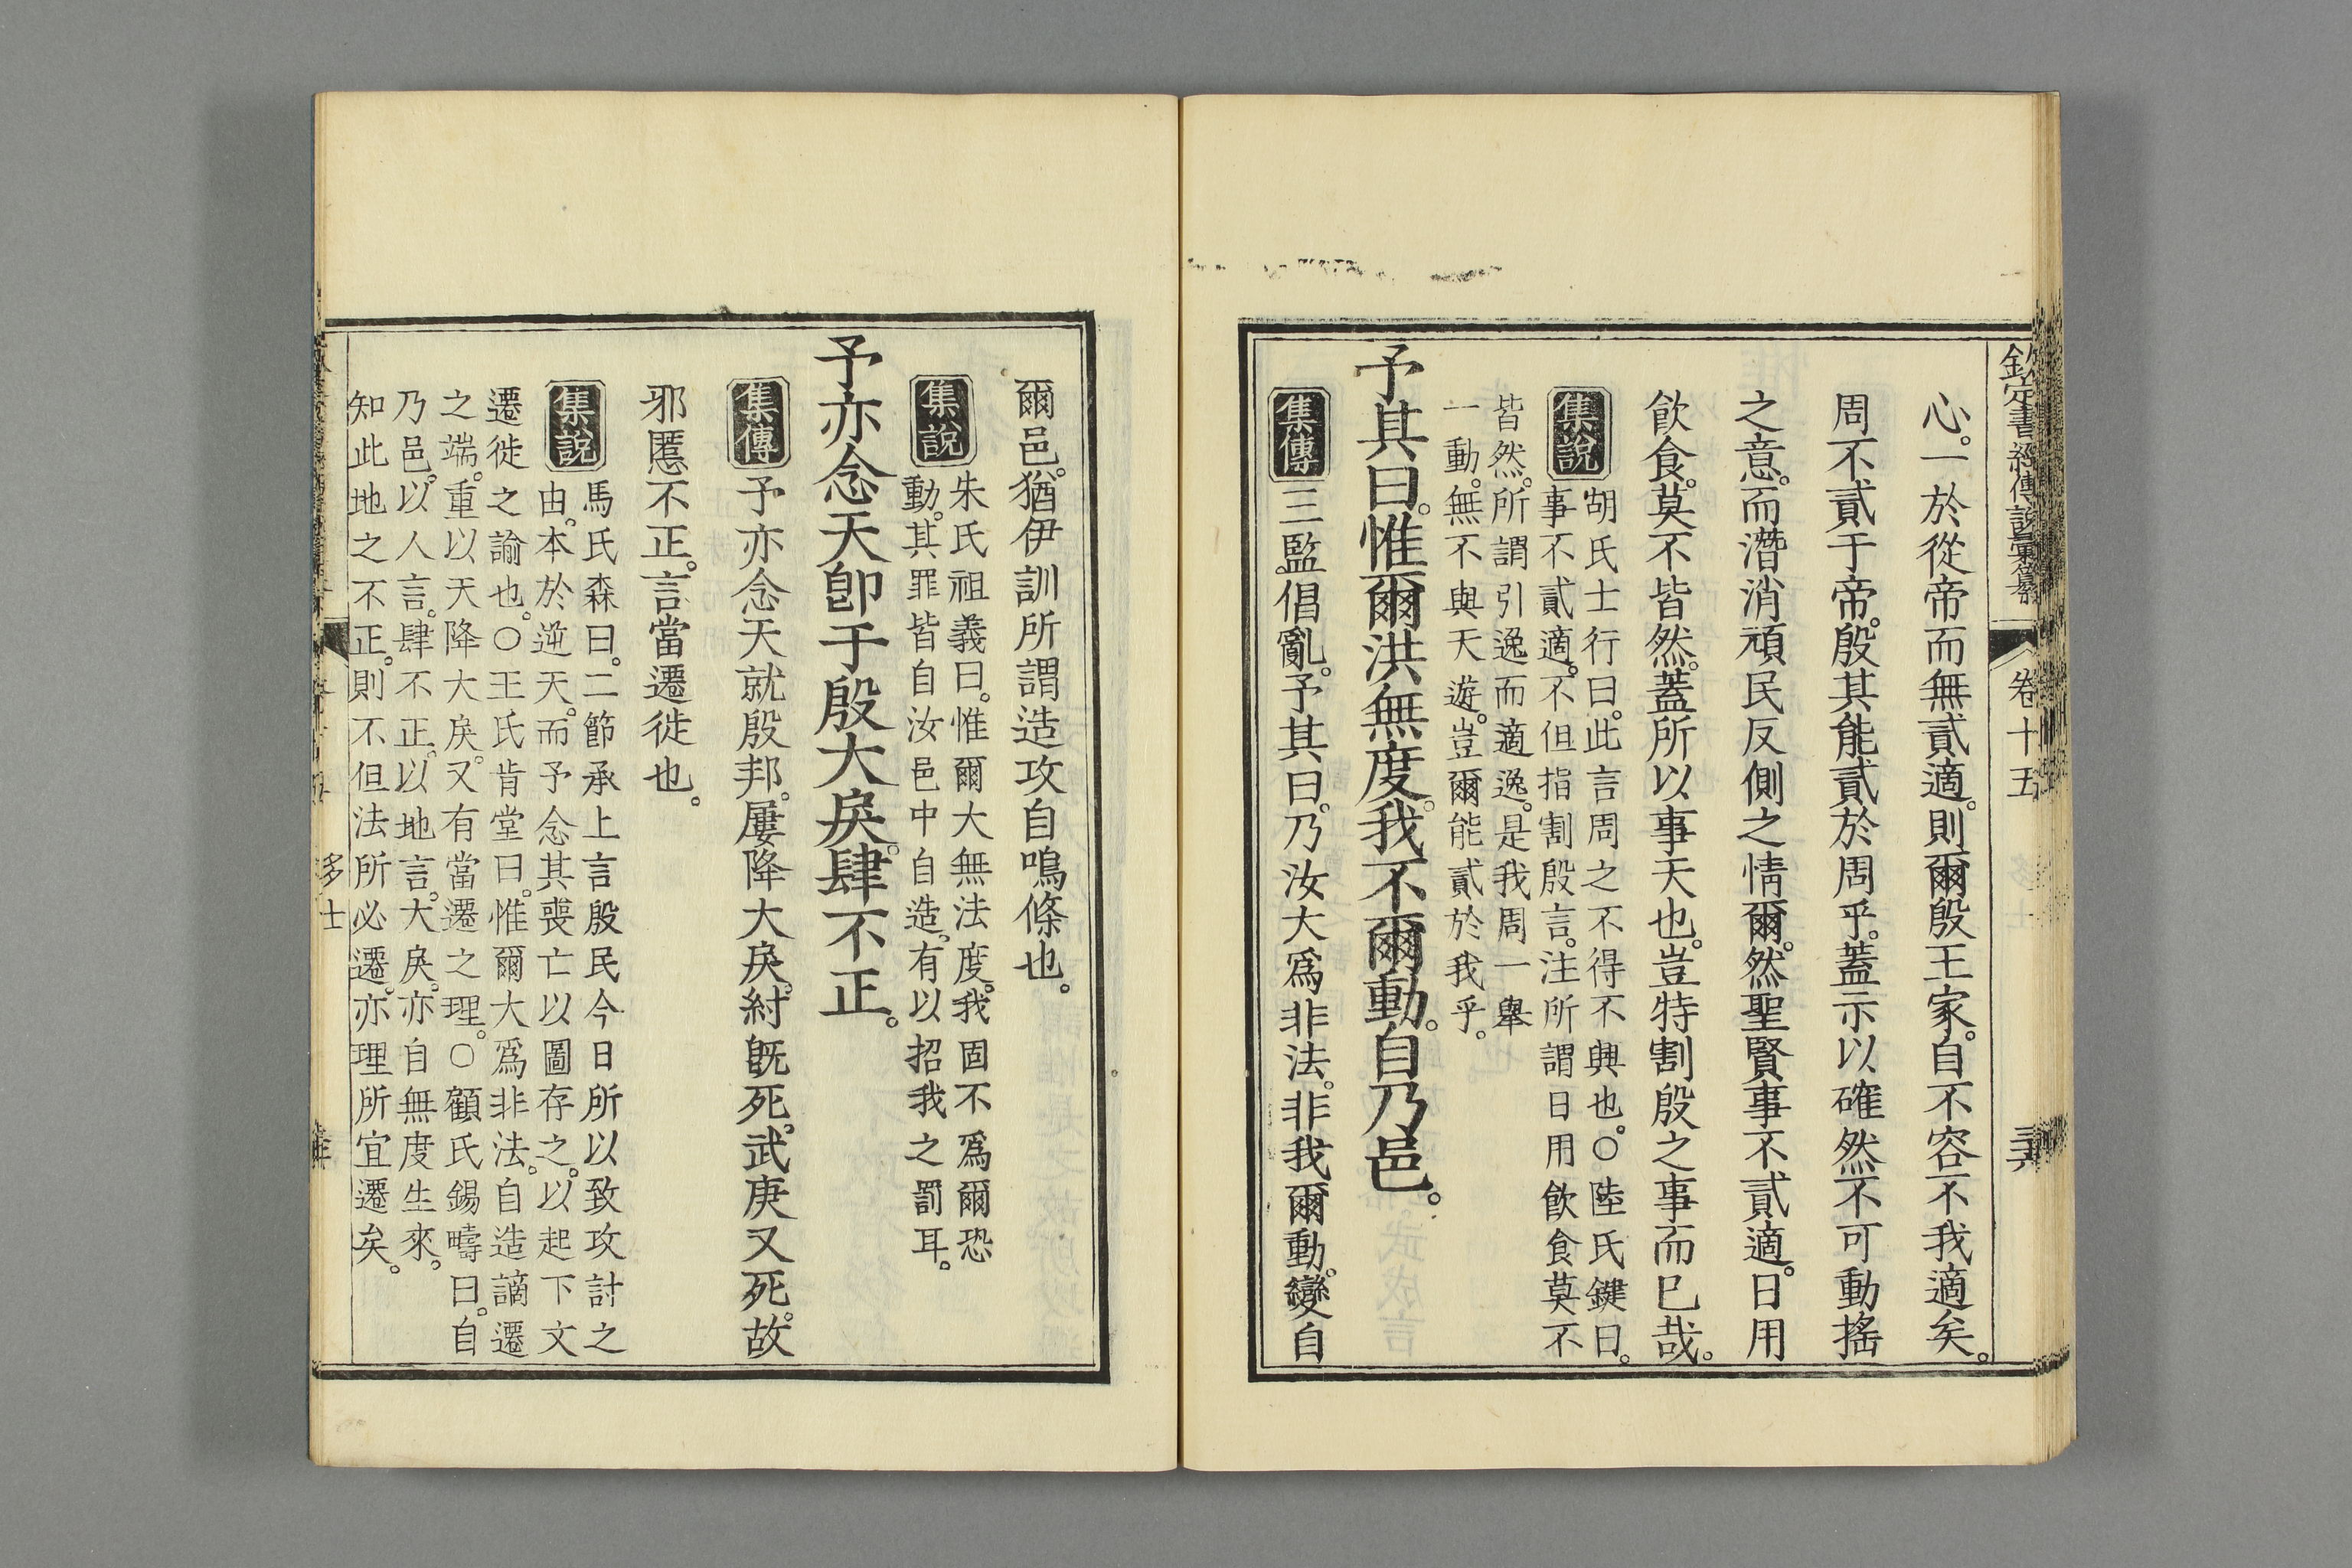 欽定書經傳說彙纂
卷十五
心。一於從帝而無貳適。則爾殷王家。自不容不我適矣。
周不貳于帝。殷其能貳於周乎。蓋示以確然不可動搖
之意。而潛消頑民反側之情爾。然聖賢事不貳適。日用
飲食。莫不皆然。蓋所以事天也。豈特割殷之事而已哉。
集說
胡氏士行曰。此言周之不得不興也。○陸氏鍵曰。
事不貳適。不但指割殷言。注所謂日用飲食莫不
皆然。所謂引逸而適逸。是我周一舉
一動。無不與天遊。豈爾能貳於我乎。
予其曰。惟爾洪無度。我不爾動。自乃邑。
集傳
三監倡亂。予其曰。乃汝大爲非法。非我爾動。變自
爾邑。猶伊訓所謂造攻自鳴條也。
集說
朱氏祖義曰。惟爾大無法度。我固不爲爾恐
動。其罪皆自汝邑中自造。有以招我之罰耳。
予亦念天卽于殷大戾。肆不正。
集傳
予亦念天就殷邦。屢降大戾。紂旣死。武庚又死。故
邪慝不正。言當遷徙也。
集說
馬氏森曰。二節承上言殷民今日所以致攻討之
由。本於逆天。而予念其喪亡以圖存之。以起下文
遷徙之諭也。○王氏肯堂曰。惟爾大爲非法。自造謫遷
之端。重以天降大戾。又有當遷之理。○顧氏錫疇曰。自
乃邑。以人言。肆不正。以地言。大戾。亦自無度生來。
知此地之不正。則不但法所必遷。亦理所宜遷矣。
多士